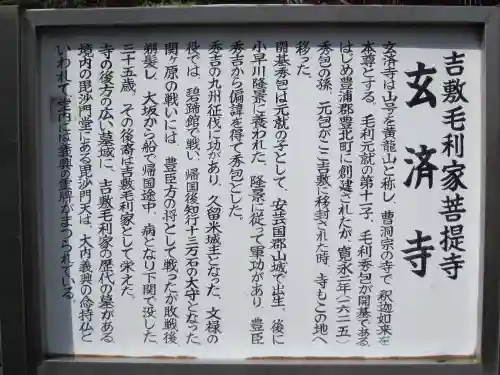 吉敷毛利家菩提寺
玄済寺
玄済寺は山号を黄龍山と称し、曹洞宗の寺で、釈迦如来を
本尊とする。毛利元就の第十一子、毛利秀包が開基である。
はじめ豊浦郡豊北町に創建されたが、寛永二年(一六二五)
秀包の孫、元包がここ吉敷に移封された時、寺もこの地へ
移った。
開基秀包は元就の子として、安芸国郡山城で出生、後に
小早川隆景に養われた。隆景に従って軍功があり、豊臣
秀吉から偏諱を得て秀包とした。
秀吉の九州征伐に功があり、久留米城主となった。文禄の
役では、碧蹄館で戦い、帰国後知行十三万石の大守となった。
関ヶ原の戦いには、豊臣方の将として戦ったが敗戦後、
剃髪し、大坂から船で帰国途中、病となり下関で没した。
三十五歳。その後裔は吉敷毛利家として栄えた。
寺の後方の広い墓域に、吉敷毛利家の歴代の墓がある。
境内の毘沙門堂にある毘沙門天は、大内義興の念持仏と
いわれて堂内には義興の霊牌がまつられている。